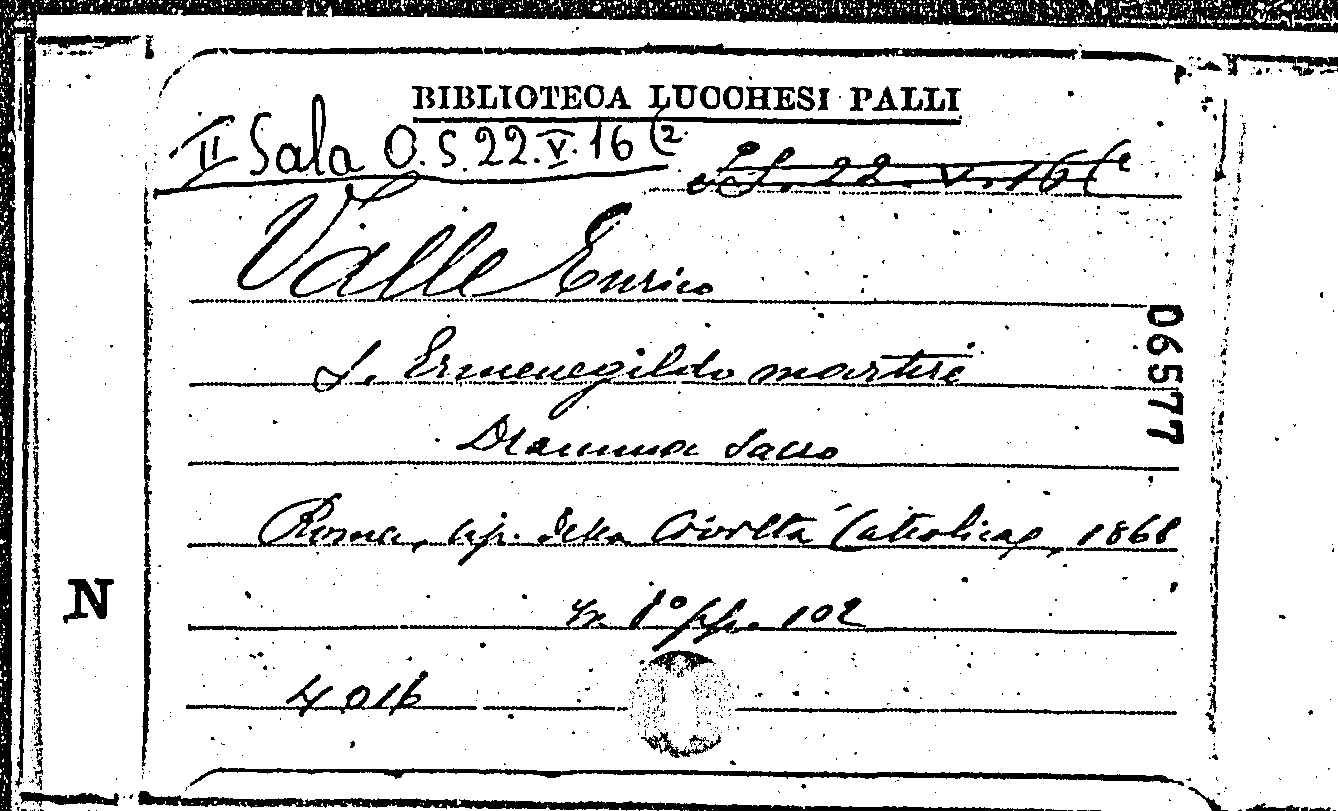 BIBLIOTECA LUCCHESI PALLI
II Sala O.S. 22.V.16(2
S.S. 22. V. 16(2
Valle Enrico
S. Ermenegildo martire
Dramma Sacro
Roma, tip. della Civiltà Cattolica, 1868
in 8° pp. 102
4016
06577
N